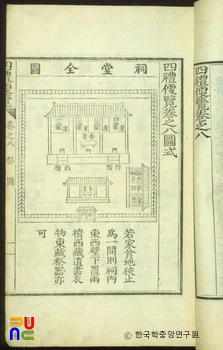 四禮便覽卷之八
四禮便覽卷之八圖式
祠堂全圖
若家貧地狹止
爲一間則祠内
東西壁下置兩
櫃西藏遺書衣
物東藏祭器亦
可
四禮便覽
卷之八
圖
© 한국학중앙연구원